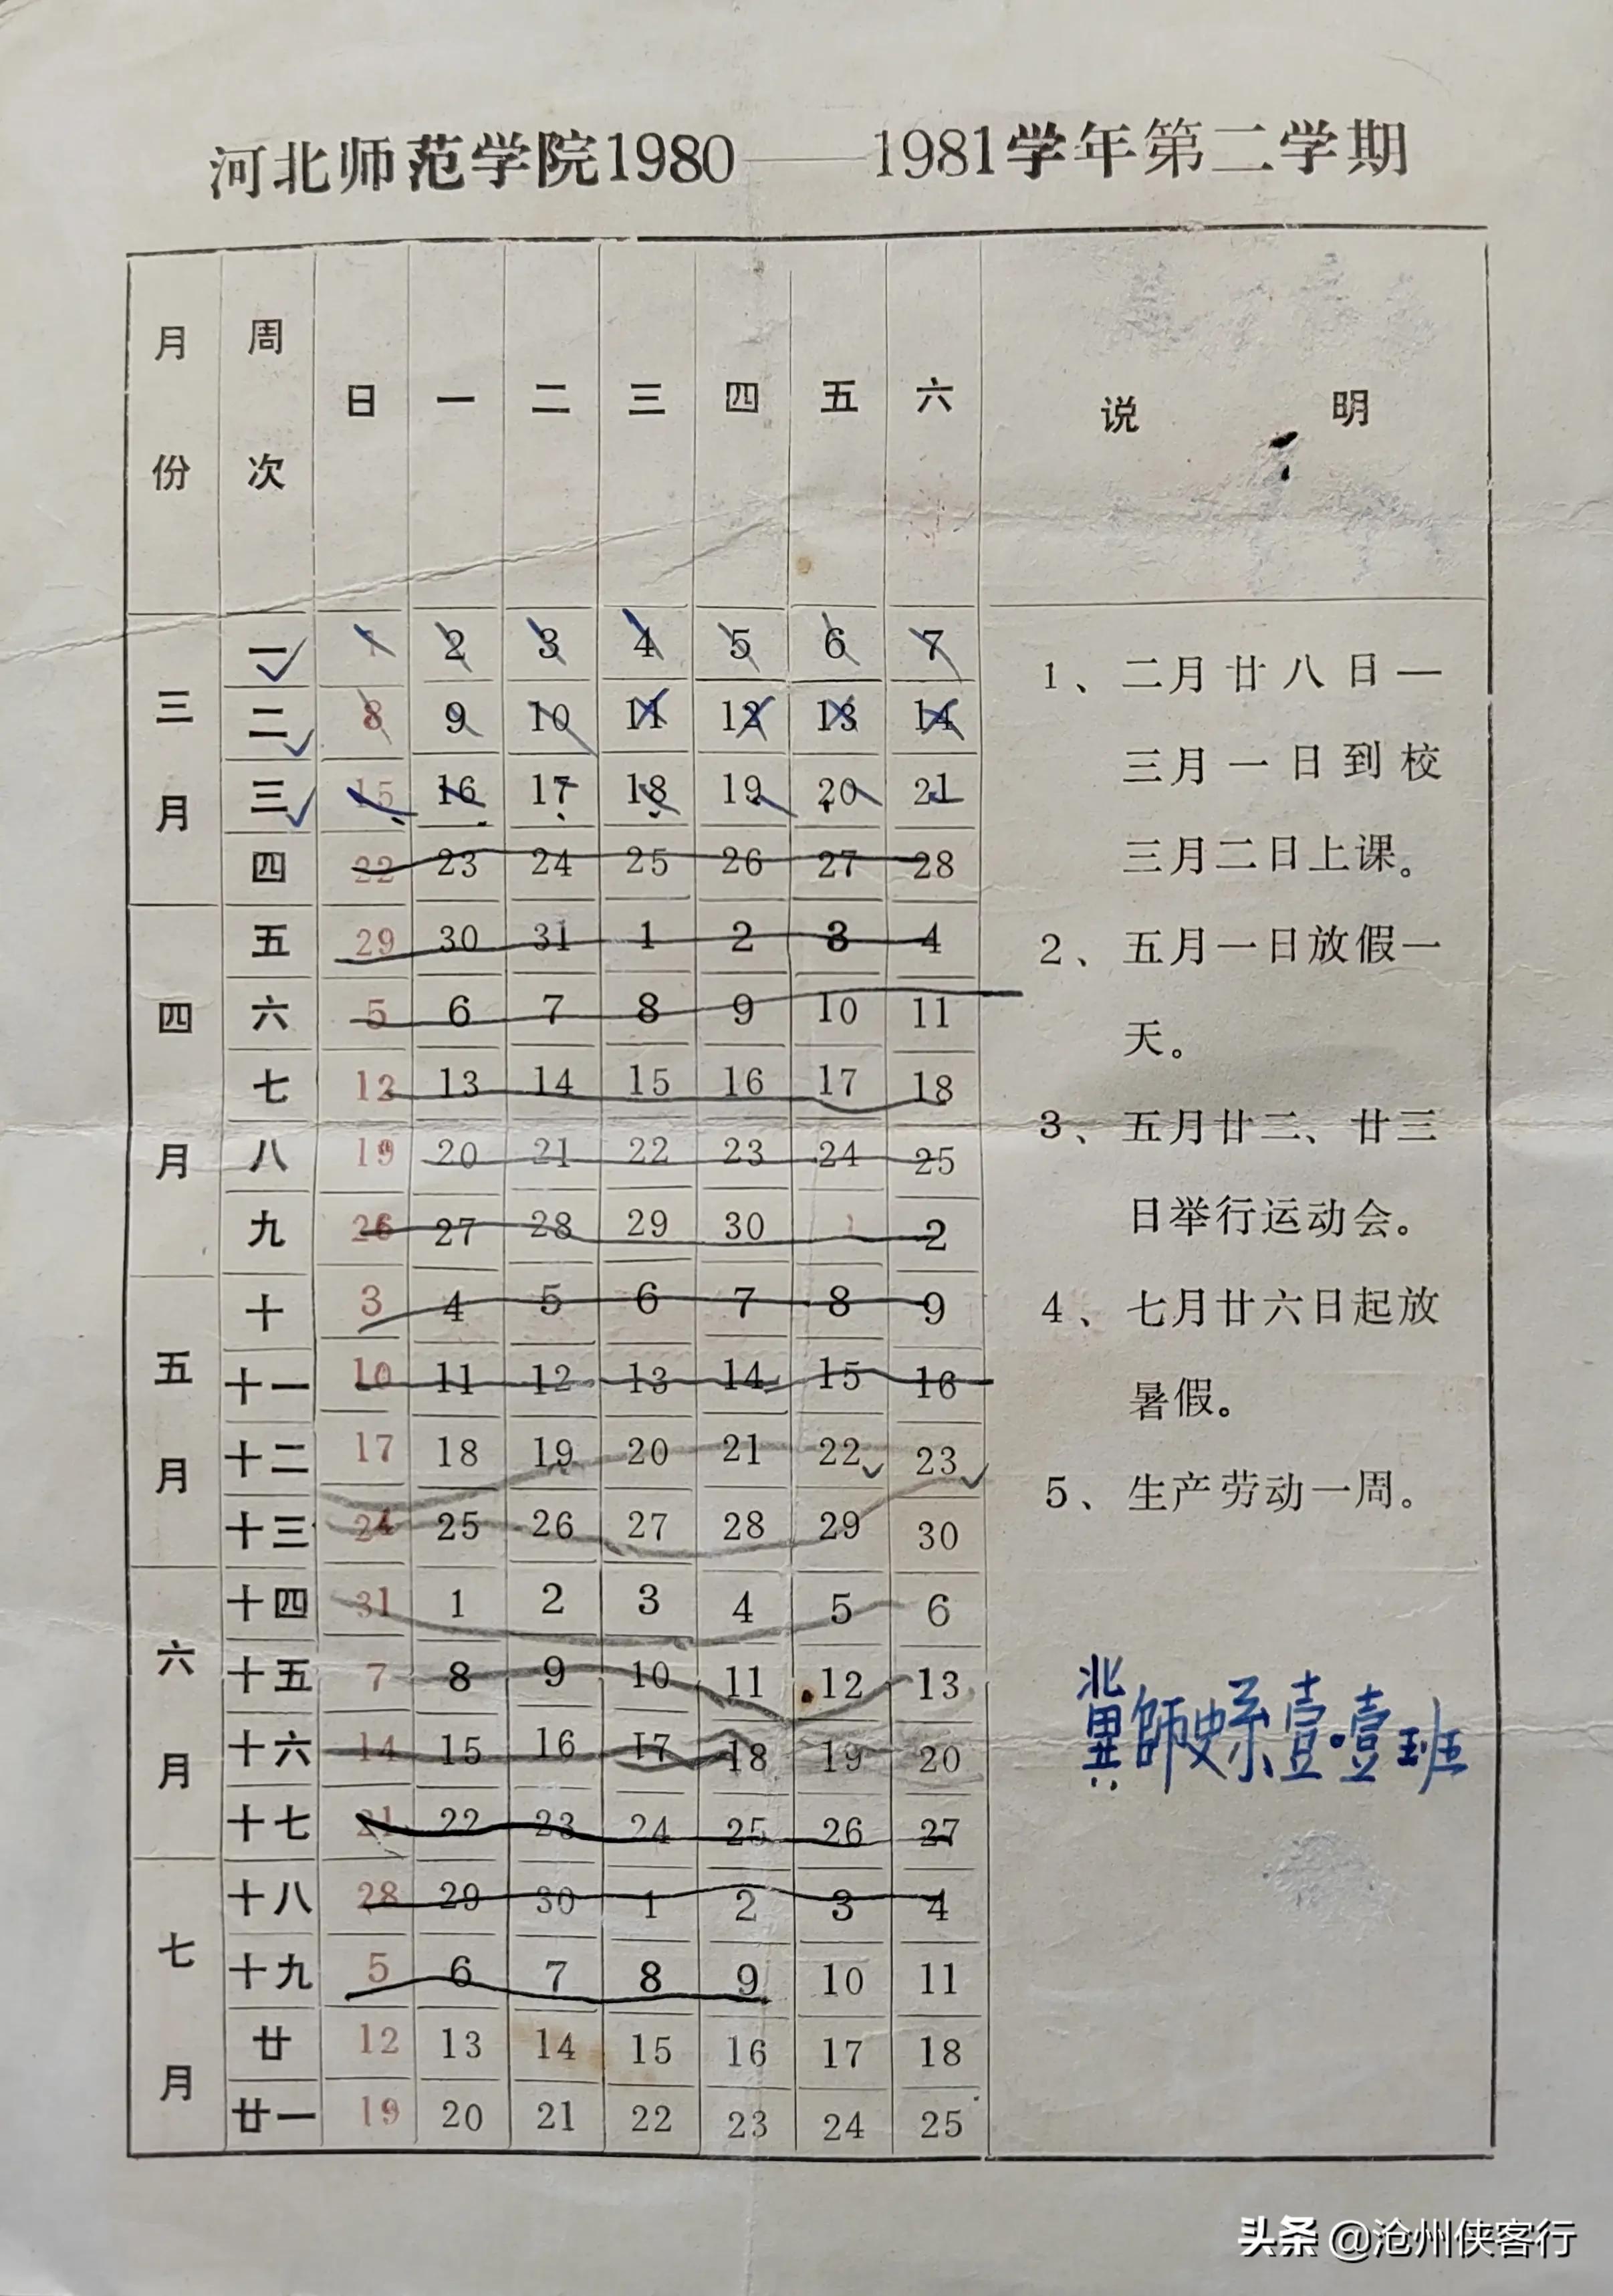 河北师范学院1980——1981学年第二学期
月份 周次 日 一 二 三 四 五 六 说明
三月
一 1 2 3 4 5 6 7
二 8 9 10 11 12 13 14
三 15 16 17 18 19 20 21
四 22 23 24 25 26 27 28
四月
五 29 30 31 1 2 3 4
六 5 6 7 8 9 10 11
七 12 13 14 15 16 17 18
八 19 20 21 22 23 24 25
九 26 27 28 29 30 1 2
五月
十 3 4 5 6 7 8 9
十一 10 11 12 13 14 15 16
十二 17 18 19 20 21 22 23
十三 24 25 26 27 28 29 30
六月
十四 31 1 2 3 4 5 6
十五 7 8 9 10 11 12 13
十六 14 15 16 17 18 19 20
十七 21 22 23 24 25 26 27
七月
十八 28 29 30 1 2 3 4
十九 5 6 7 8 9 10 11
廿 12 13 14 15 16 17 18
廿一 19 20 21 22 23 24 25
1、二月廿八日—
三月一日到校
三月二日上课。
2、五月一日放假一
天。
3、五月廿二、廿三
日举行运动会。
4、七月廿六日起放
暑假。
5、生产劳动一周。
冀師史系壹·壹班
头条 @沧州侠客行